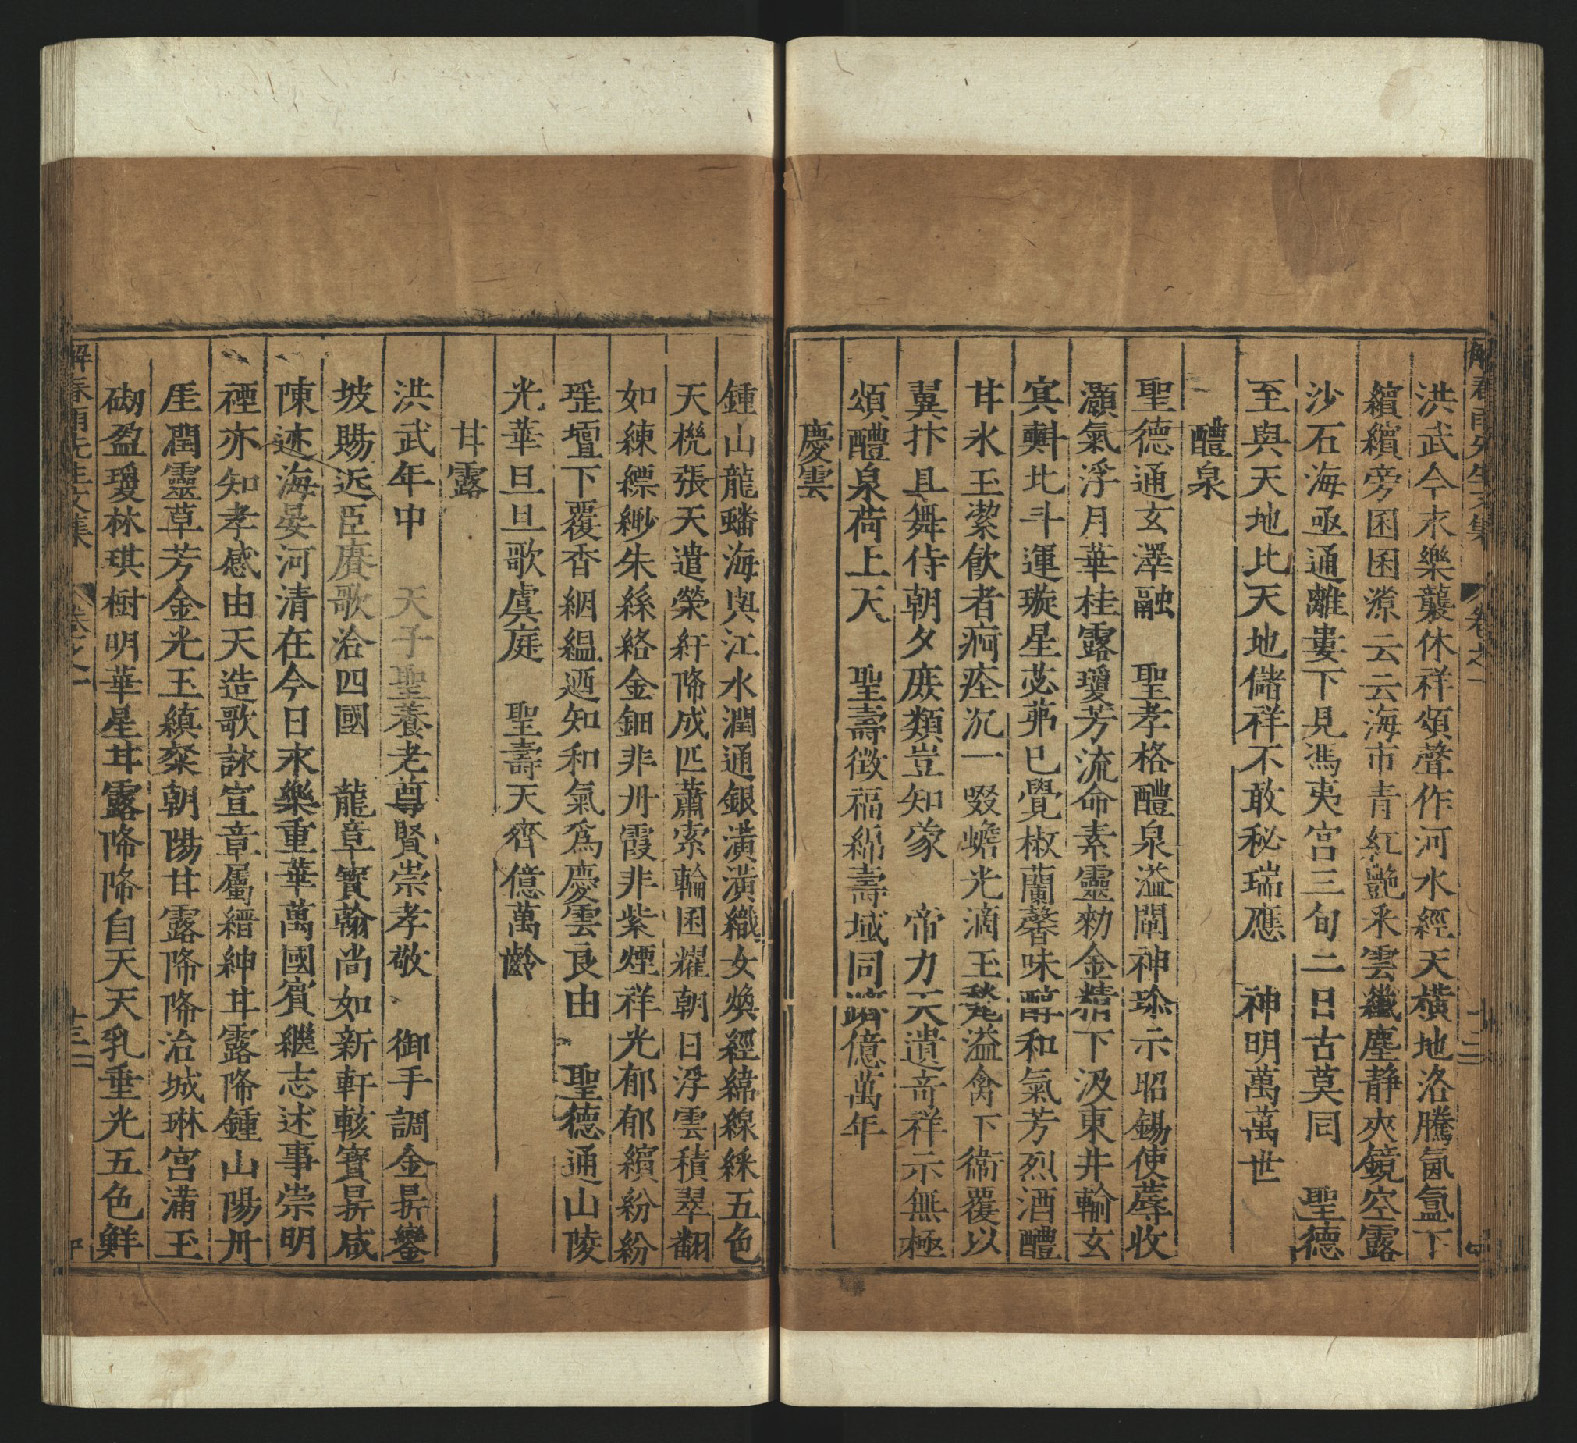 洪武今永樂襲休祥頌聲作河水經天橫地洛騰氤氳下
繽繽旁囷囷漈云云海市青紅艷釆雲纖塵静夾鏡空露
沙石海亟通離婁下見馮夷宮三旬二日古莫同　聖德
至與天地比天地儲祥不敢秘瑞應　神明萬萬世
醴泉
聖德通玄澤融　聖孝格醴泉溢闡神瑜示昭錫使蓐收
灝氣浮月華桂露瓊芳流命素靈勑金精下汲東井輸玄
㝠斟北斗運璇星苾茀已覺椒蘭馨味醇和氣芳烈酒醴
甘氷玉潔飲者痾痊沉一啜蟾光滴玉甃溢禽下衞覆以
翼抃且舞侍朝夕庶類豈知象　帝力天遺竒祥示無極
頌醴泉荷上天　聖壽徵福綿壽域同躋億萬年
慶雲
鍾山龍蟠海與江水潤通銀潢潢織女煥經緯線綵五色
天機張天遣榮紆降成匹蕭索輪囷耀朝日浮雲積翠翻
如練縹緲朱絲絡金鈿非丹霞非紫煙祥光郁郁繽紛紛
瑶壇下覆香絪縕迺知和氣爲慶雲良由　聖德通山陵
光華旦旦歌虞庭　聖壽天齊億萬齡
甘露
洪武年中　天子聖養老尊賢崇孝敬　御手調金鼎鑾
坡賜近臣賡歌洽四國　龍章寳翰尚如新軒輅寳鼎咸
陳述海晏河清在今日永樂重華萬國賓繼志述事崇明
禋亦知孝感由天造歌詠宣章屬縉紳甘露降鍾山陽丹
厓潤靈草芳金光玉縝粲朝陽甘露降降冶城琳宮滿玉
砌盈瓊林琪樹明華星甘露降降自天天乳垂光五色鮮
解春雨先生文集　卷之一　十三